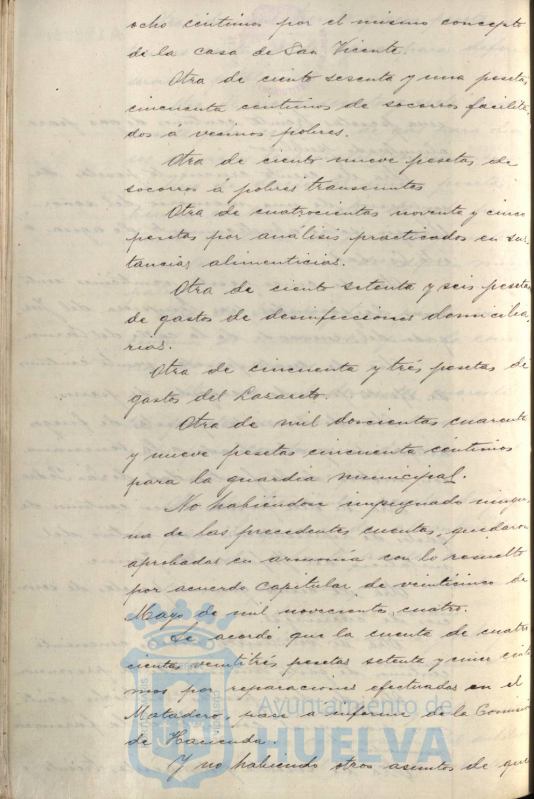 ocho centimos por el mismo concepto
de la casa de San Vicente.
Otra de ciento sesenta y una pesetas
cincuenta centimos de socorros facilita-
dos á vecinos pobres.
Otra de ciento nueve pesetas de
socorros á pobres transeuntes
Otra de cuatrocientas noventa y cinco
pesetas por análisis practicados en sus-
tancias alimenticias.
Otra de ciento setenta y seis pesetas
de gastos de desinfecciones domicilia-
rias.
Otra de cincuenta y trés pesetas de
gastos del Lazareto.
Otra de mil doscientas cuarenta
y nueve pesetas cincuenta centimos
para la guardia municipal.
No habiéndose impugnado ningu-
na de las precedentes cuentas, quedaron
aprobadas en armonía con lo resuelto
por acuerdo capitular de veinticinco de
Mayo de mil novecientos cuatro.
Se acordó que la cuenta de cuatro
cientas veintitrés pesetas setenta y cinco cénti
mos por reparaciones efectuadas en el
Matadero, pase a informe de la Comisión
de Hacienda.
Y no habiendo otros asuntos de que
Ayuntamiento de
HUELVA